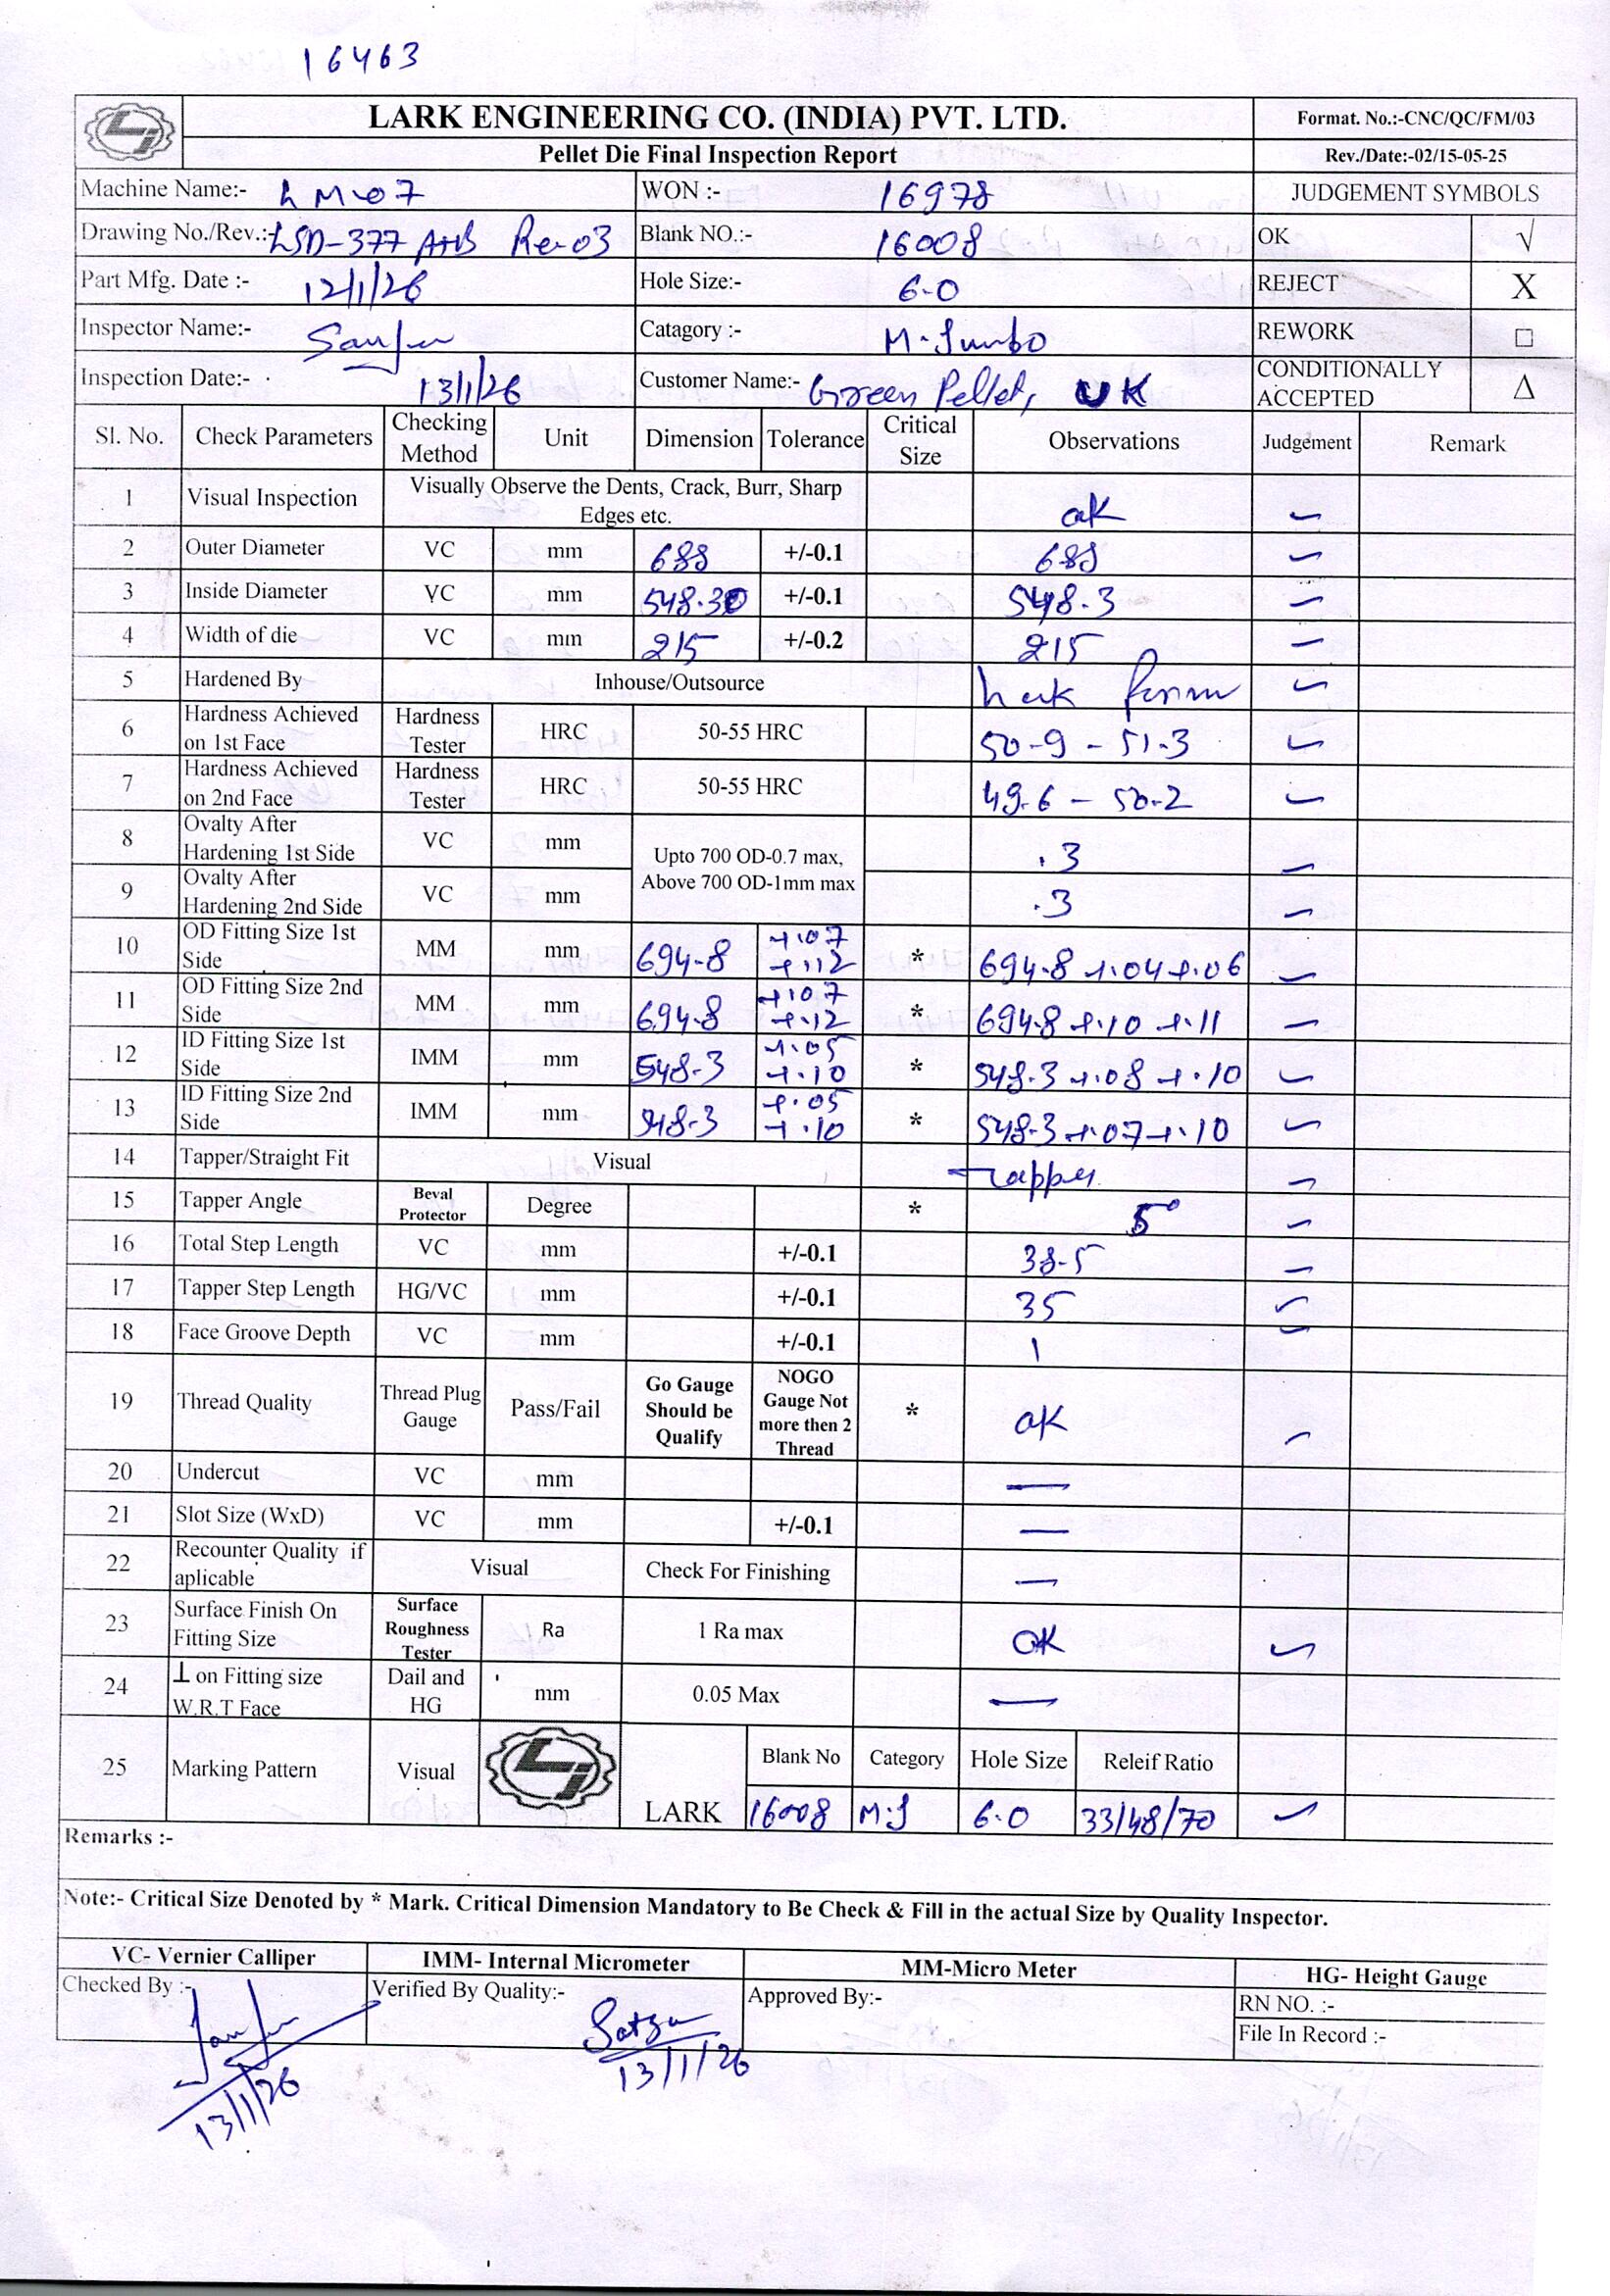 16463
LARK ENGINEERING CO. (INDIA) PVT. LTD. Format. No.:-CNC/QC/FM/03
Pellet Die Final Inspection Report Rev./Date:-02/15-05-25
Machine Name:- LM-07 WON :- 16978 JUDGEMENT SYMBOLS
Drawing No./Rev.: LSD-377 A+B Re-03 Blank NO.:- 16008 OK √
Part Mfg. Date :- 12/1/26 Hole Size:- 6.0 REJECT X
Inspector Name:- Catagory :- M.Jumbo REWORK □
Inspection Date:- 13/1/26 Customer Name:- Green Pellet, UK CONDITIONALLY ACCEPTED Δ
Sl. No. Check Parameters Checking Method Unit Dimension Tolerance Critical Size Observations Judgement Remark
1 Visual Inspection Visually Observe the Dents, Crack, Burr, Sharp Edges etc. ok ✓
2 Outer Diameter VC mm 688 +/-0.1 688 ✓
3 Inside Diameter VC mm 548.30 +/-0.1 548.3 ✓
4 Width of die VC mm 215 +/-0.2 215 ✓
5 Hardened By Inhouse/Outsource ✓
6 Hardness Achieved on 1st Face Hardness Tester HRC 50-55 HRC 50.9 - 51.3 ✓
7 Hardness Achieved on 2nd Face Hardness Tester HRC 50-55 HRC 49.6 - 50.2 ✓
8 Ovalty After Hardening 1st Side VC mm Upto 700 OD-0.7 max, Above 700 OD-1mm max .3 ✓
9 Ovalty After Hardening 2nd Side VC mm .3 ✓
10 OD Fitting Size 1st Side MM mm 694.8 +.07 +.12 * 694.8 +.04 +.06 ✓
11 OD Fitting Size 2nd Side MM mm 694.8 +.07 +.12 * 694.8 +.10 +.11 ✓
12 ID Fitting Size 1st Side IMM mm 548.3 +.05 +.10 * 548.3 +.08 +.10 ✓
13 ID Fitting Size 2nd Side IMM mm 548.3 +.05 +.10 * 548.3 +.07 +.10 ✓
14 Tapper/Straight Fit Visual Tapper ✓
15 Tapper Angle Beval Protector Degree * 5° ✓
16 Total Step Length VC mm +/-0.1 38.5 ✓
17 Tapper Step Length HG/VC mm +/-0.1 35 ✓
18 Face Groove Depth VC mm +/-0.1 1 ✓
19 Thread Quality Thread Plug Gauge Pass/Fail Go Gauge Should be Qualify NOGO Gauge Not more then 2 Thread * ok ✓
20 Undercut VC mm —
21 Slot Size (WxD) VC mm +/-0.1 —
22 Recounter Quality if aplicable Visual Check For Finishing —
23 Surface Finish On Fitting Size Surface Roughness Tester Ra 1 Ra max OK ✓
24 ⊥ on Fitting size W.R.T Face Dail and HG mm 0.05 Max —
25 Marking Pattern Visual LARK Blank No Category Hole Size Releif Ratio
16008 M.J 6.0 33/48/70 ✓
Remarks :-
Note:- Critical Size Denoted by * Mark. Critical Dimension Mandatory to Be Check & Fill in the actual Size by Quality Inspector.
VC- Vernier Calliper IMM- Internal Micrometer MM-Micro Meter HG- Height Gauge
Checked By :- Verified By Quality:- Approved By:- RN NO. :-
File In Record :-
13/1/26 13/1/26